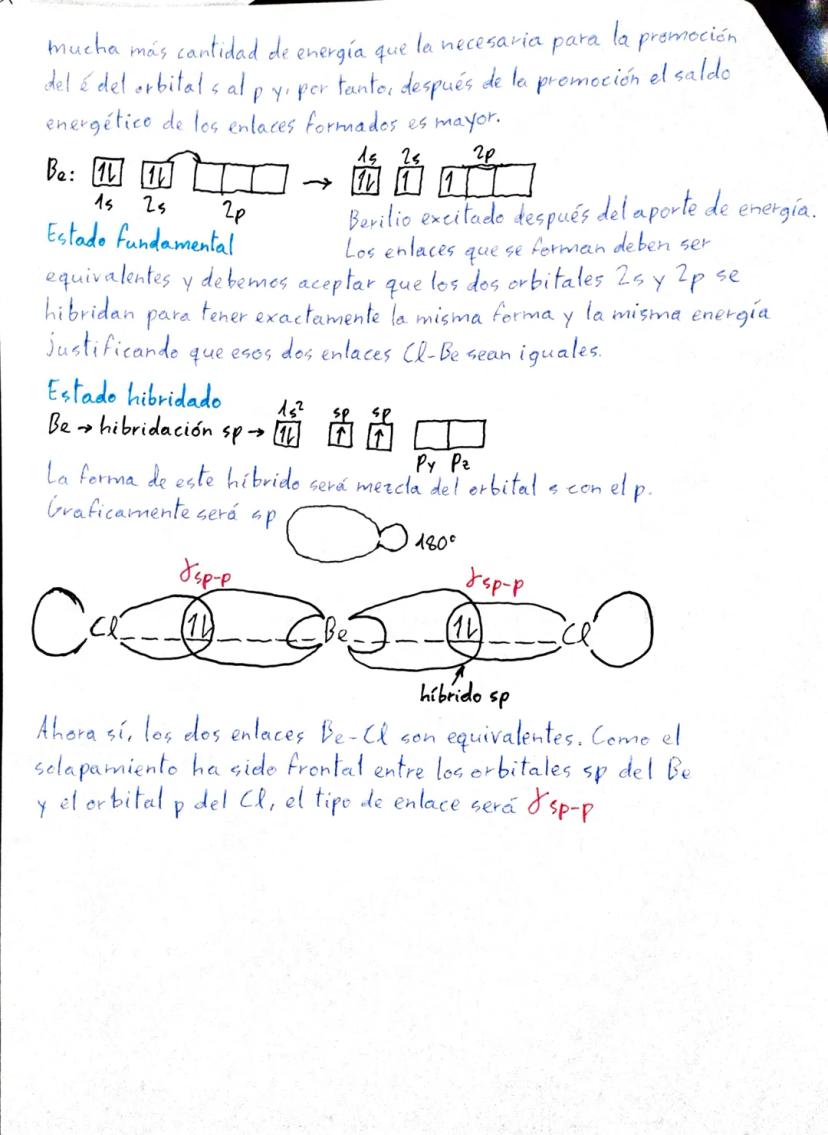 mucha más cantidad de energía que la necesaria para la promoción
del é del orbital s al p y, por tanto, después de la promoción el saldo
energético de los enlaces formados es mayor.
1s 2s 2p
Be: 1L 1L → 1L 1 1
1s 2s 2p
Berilio excitado después del aporte de energía.
Estado fundamental
Los enlaces que se forman deben ser
equivalentes y debemos aceptar que los dos orbitales 2s y 2p se
hibridan para tener exactamente la misma forma y la misma energía
justificando que esos dos enlaces Cl-Be sean iguales.
Estado hibridado
1s² sp sp
Be → hibridación sp → 1L ↑ ↑
Py Pz
La forma de este híbrido será mezcla del orbital s con el p.
Graficamente será sp
180°
γsp-p γsp-p
Cl 1L Be 1L Cl
híbrido sp
Ahora sí, los dos enlaces Be-Cl son equivalentes. Como el
solapamiento ha sido frontal entre los orbitales sp del Be
y el orbital p del Cl, el tipo de enlace será γsp-p